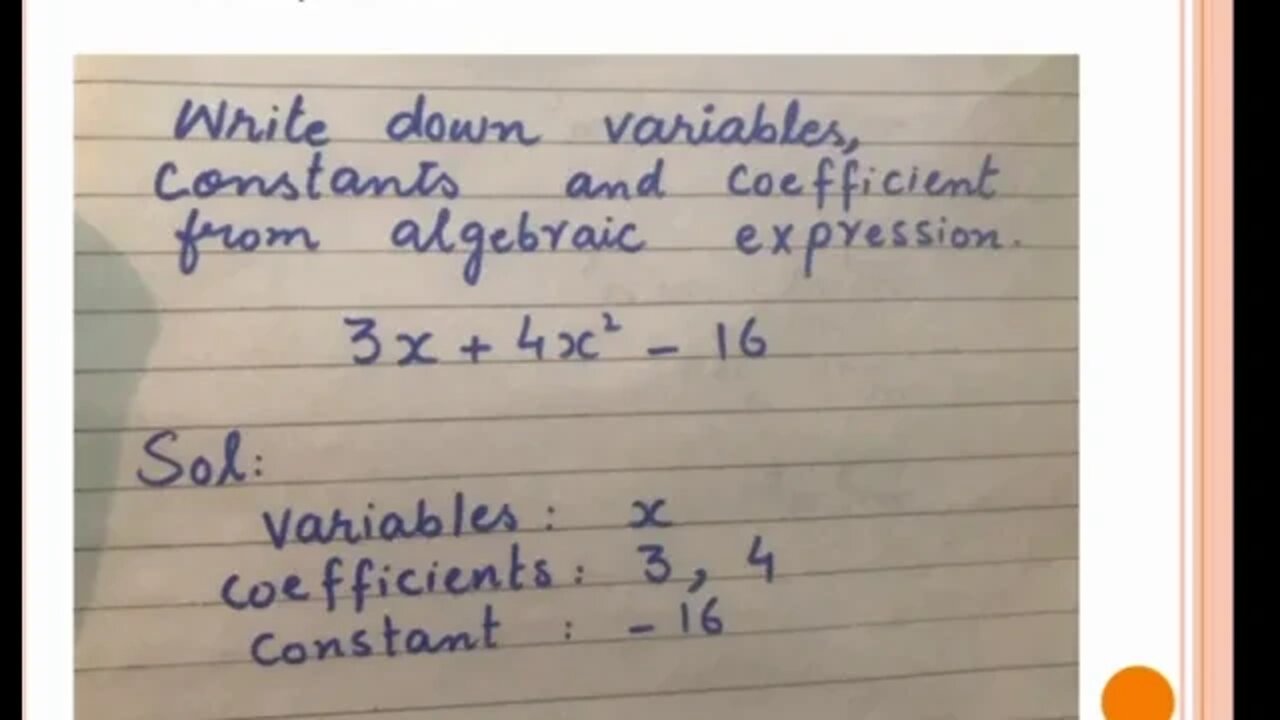 Write down variables,
Constants and Coefficient
from algebraic expression.
3x + 4x² - 16
Sol:
Variables : x
Coefficients : 3, 4
Constant : - 16